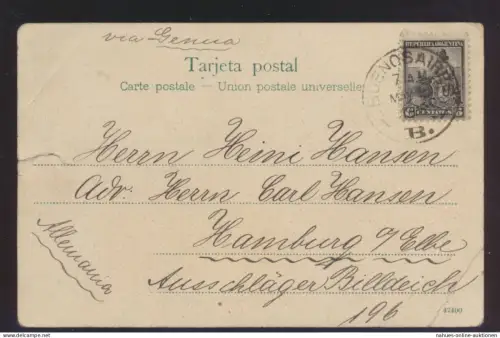 via Genua
Tarjeta postal
Carte postale — Union postale universelle
REPUBLICA ARGENTINA
BUENOS AIRES
6 CENTAVOS 6
B.
Herrn Heini Hansen
Adr. Herrn Carl Hansen
Hamburg a/Elbe
Allemania
Ausschläger Billdeich
196